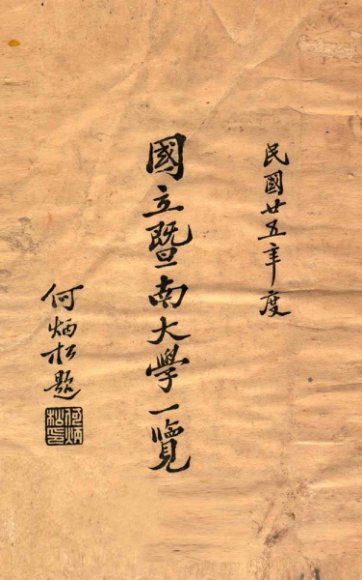 民國廿五年度
國立暨南大學一覽
何炳松題
何炳松印